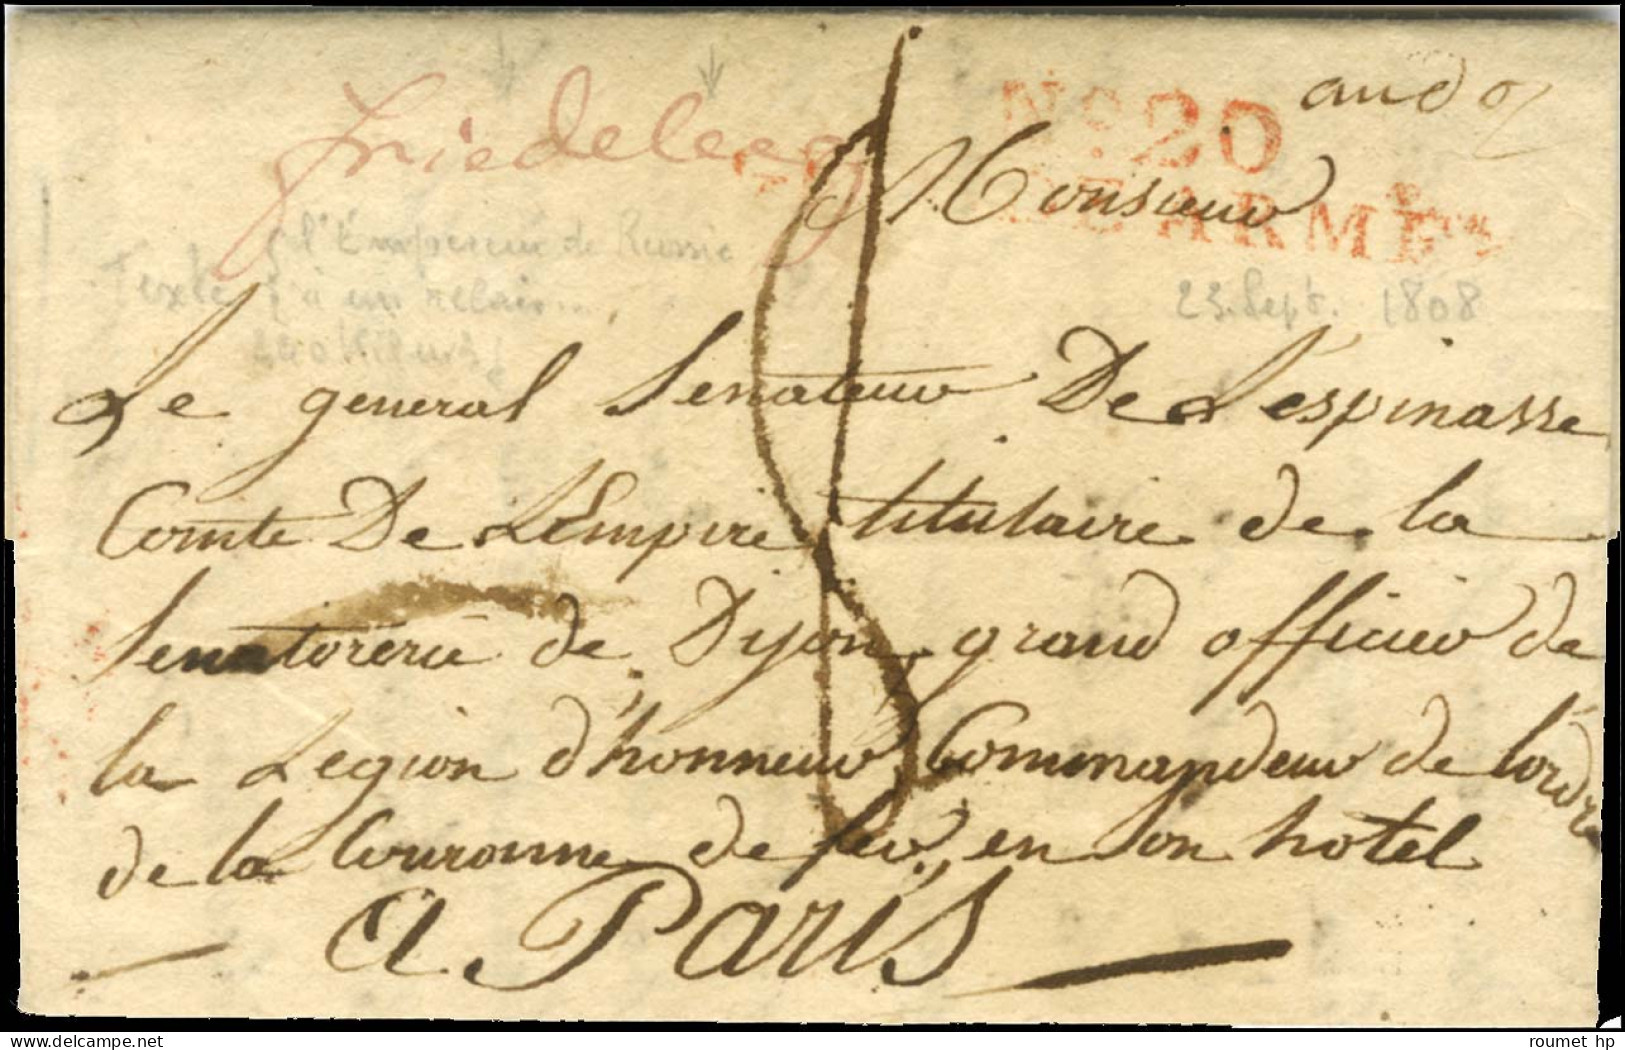 friedeleerg
N°. 20
Monsieur
l'Empereur de Russie
Texte à un relais...
23. Sept. 1808
Le general Senateur De L'espinasse
Comte De L'Empire titulaire de la
Senatorerie de Dijon, grand officier de
la Legion d'honneur, Commandeur de l'ordre
de la Couronne de fer, en son hotel
A Paris
roumet hp